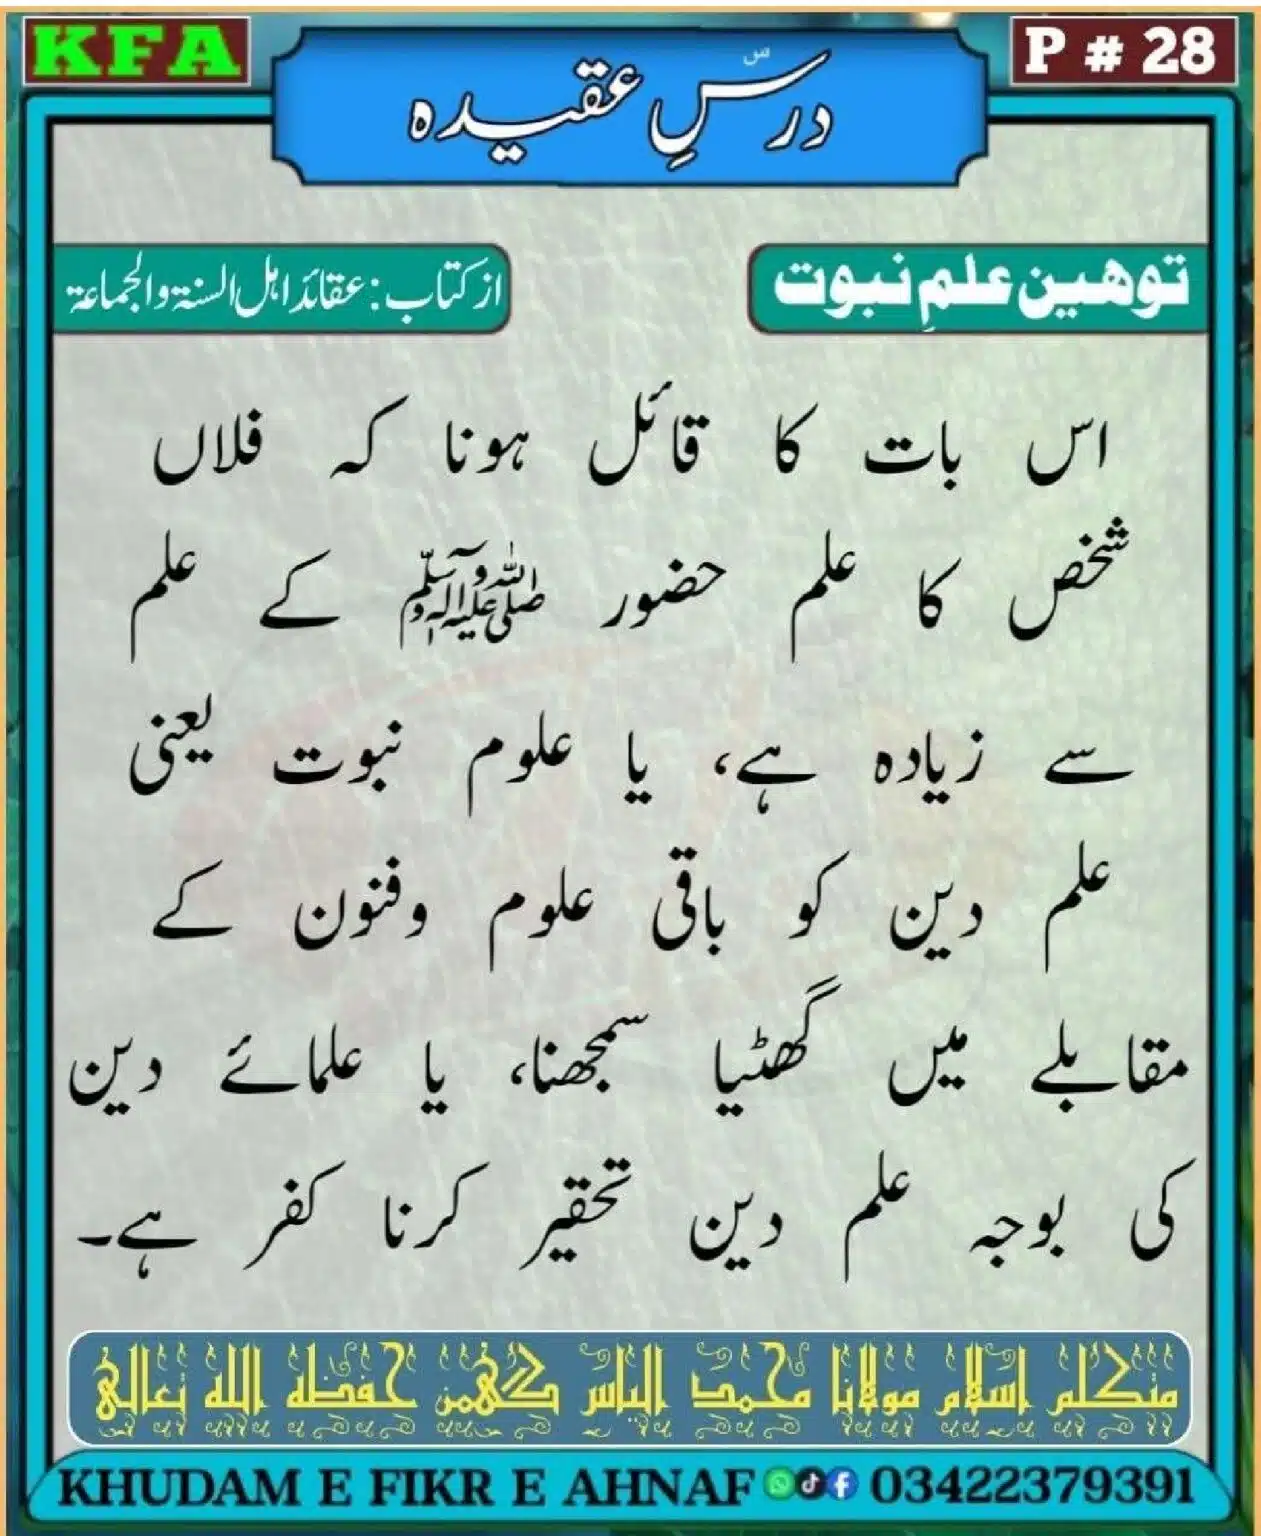 KFA
P # 28
درسِ عقیدہ
توھین علمِ نبوت
از کتاب: عقائد اہل السنۃ والجماعۃ
اس بات کا قائل ہونا کہ فلاں
شخص کا علم حضور صلی اللہ علیہ وآلہ وسلم کے علم
سے زیادہ ہے، یا علوم نبوت یعنی
علم دین کو باقی علوم وفنون کے
مقابلے میں گھٹیا سمجھنا، یا علمائے دین
کی بوجہ علم دین تحقیر کرنا کفر ہے۔
متکلم اسلام مولانا محمد الیاس گھمن حفظہ اللہ تعالیٰ
KHUDAM E FIKR E AHNAF 03422379391